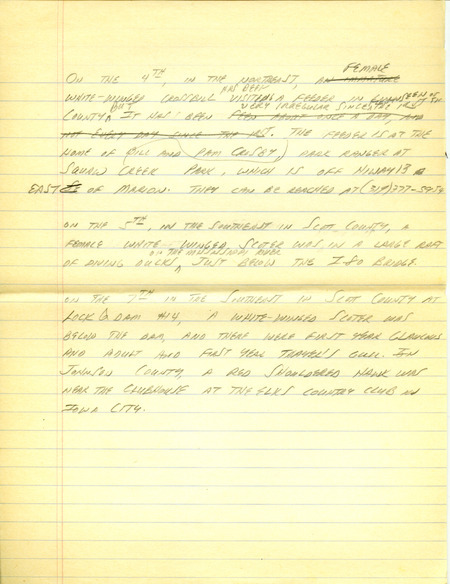 ON THE 4TH, IN THE NORTHEAST, AN IMMATURE FEMALE
WHITE-WINGED CROSSBILL HAS BEEN VISITING A FEEDER IN
COUNTY, BUT IT HAS BEEN VERY IRREGULAR SINCE THE 1ST. SEEN ONCE A DAY, AND
NOT EVERY DAY SINCE THE 1ST. THE FEEDER IS AT THE
HOME OF BILL AND PAM CRISBY, PARK RANGER AT
SQUAW CREEK PARK, WHICH IS OFF HIWAY 13
EAST OF MARION. THEY CAN BE REACHED AT (319) 377-
ON THE 5TH, IN THE SOUTHEAST IN SCOTT COUNTY, A
FEMALE WHITE-WINGED SCOTER WAS IN A LARGE RAFT
OF DIVING DUCKS ON THE MISSISSIPPI RIVER, JUST BELOW THE I-80 BRIDGE.
ON THE 7TH IN THE SOUTHEAST IN SCOTT COUNTY AT
LOCK & DAM #14, A WHITE-WINGED SCOTER WAS
BELOW THE DAM, AND THERE WERE FIRST YEAR GLAUCOUS
AND ADULT AND FIRST YEAR THAYER'S GULL. IN
JOHNSON COUNTY, A RED SHOULDERED HAWK WAS
NEAR THE CLUBHOUSE AT THE ELKS COUNTRY CLUB IN
IOWA CITY.